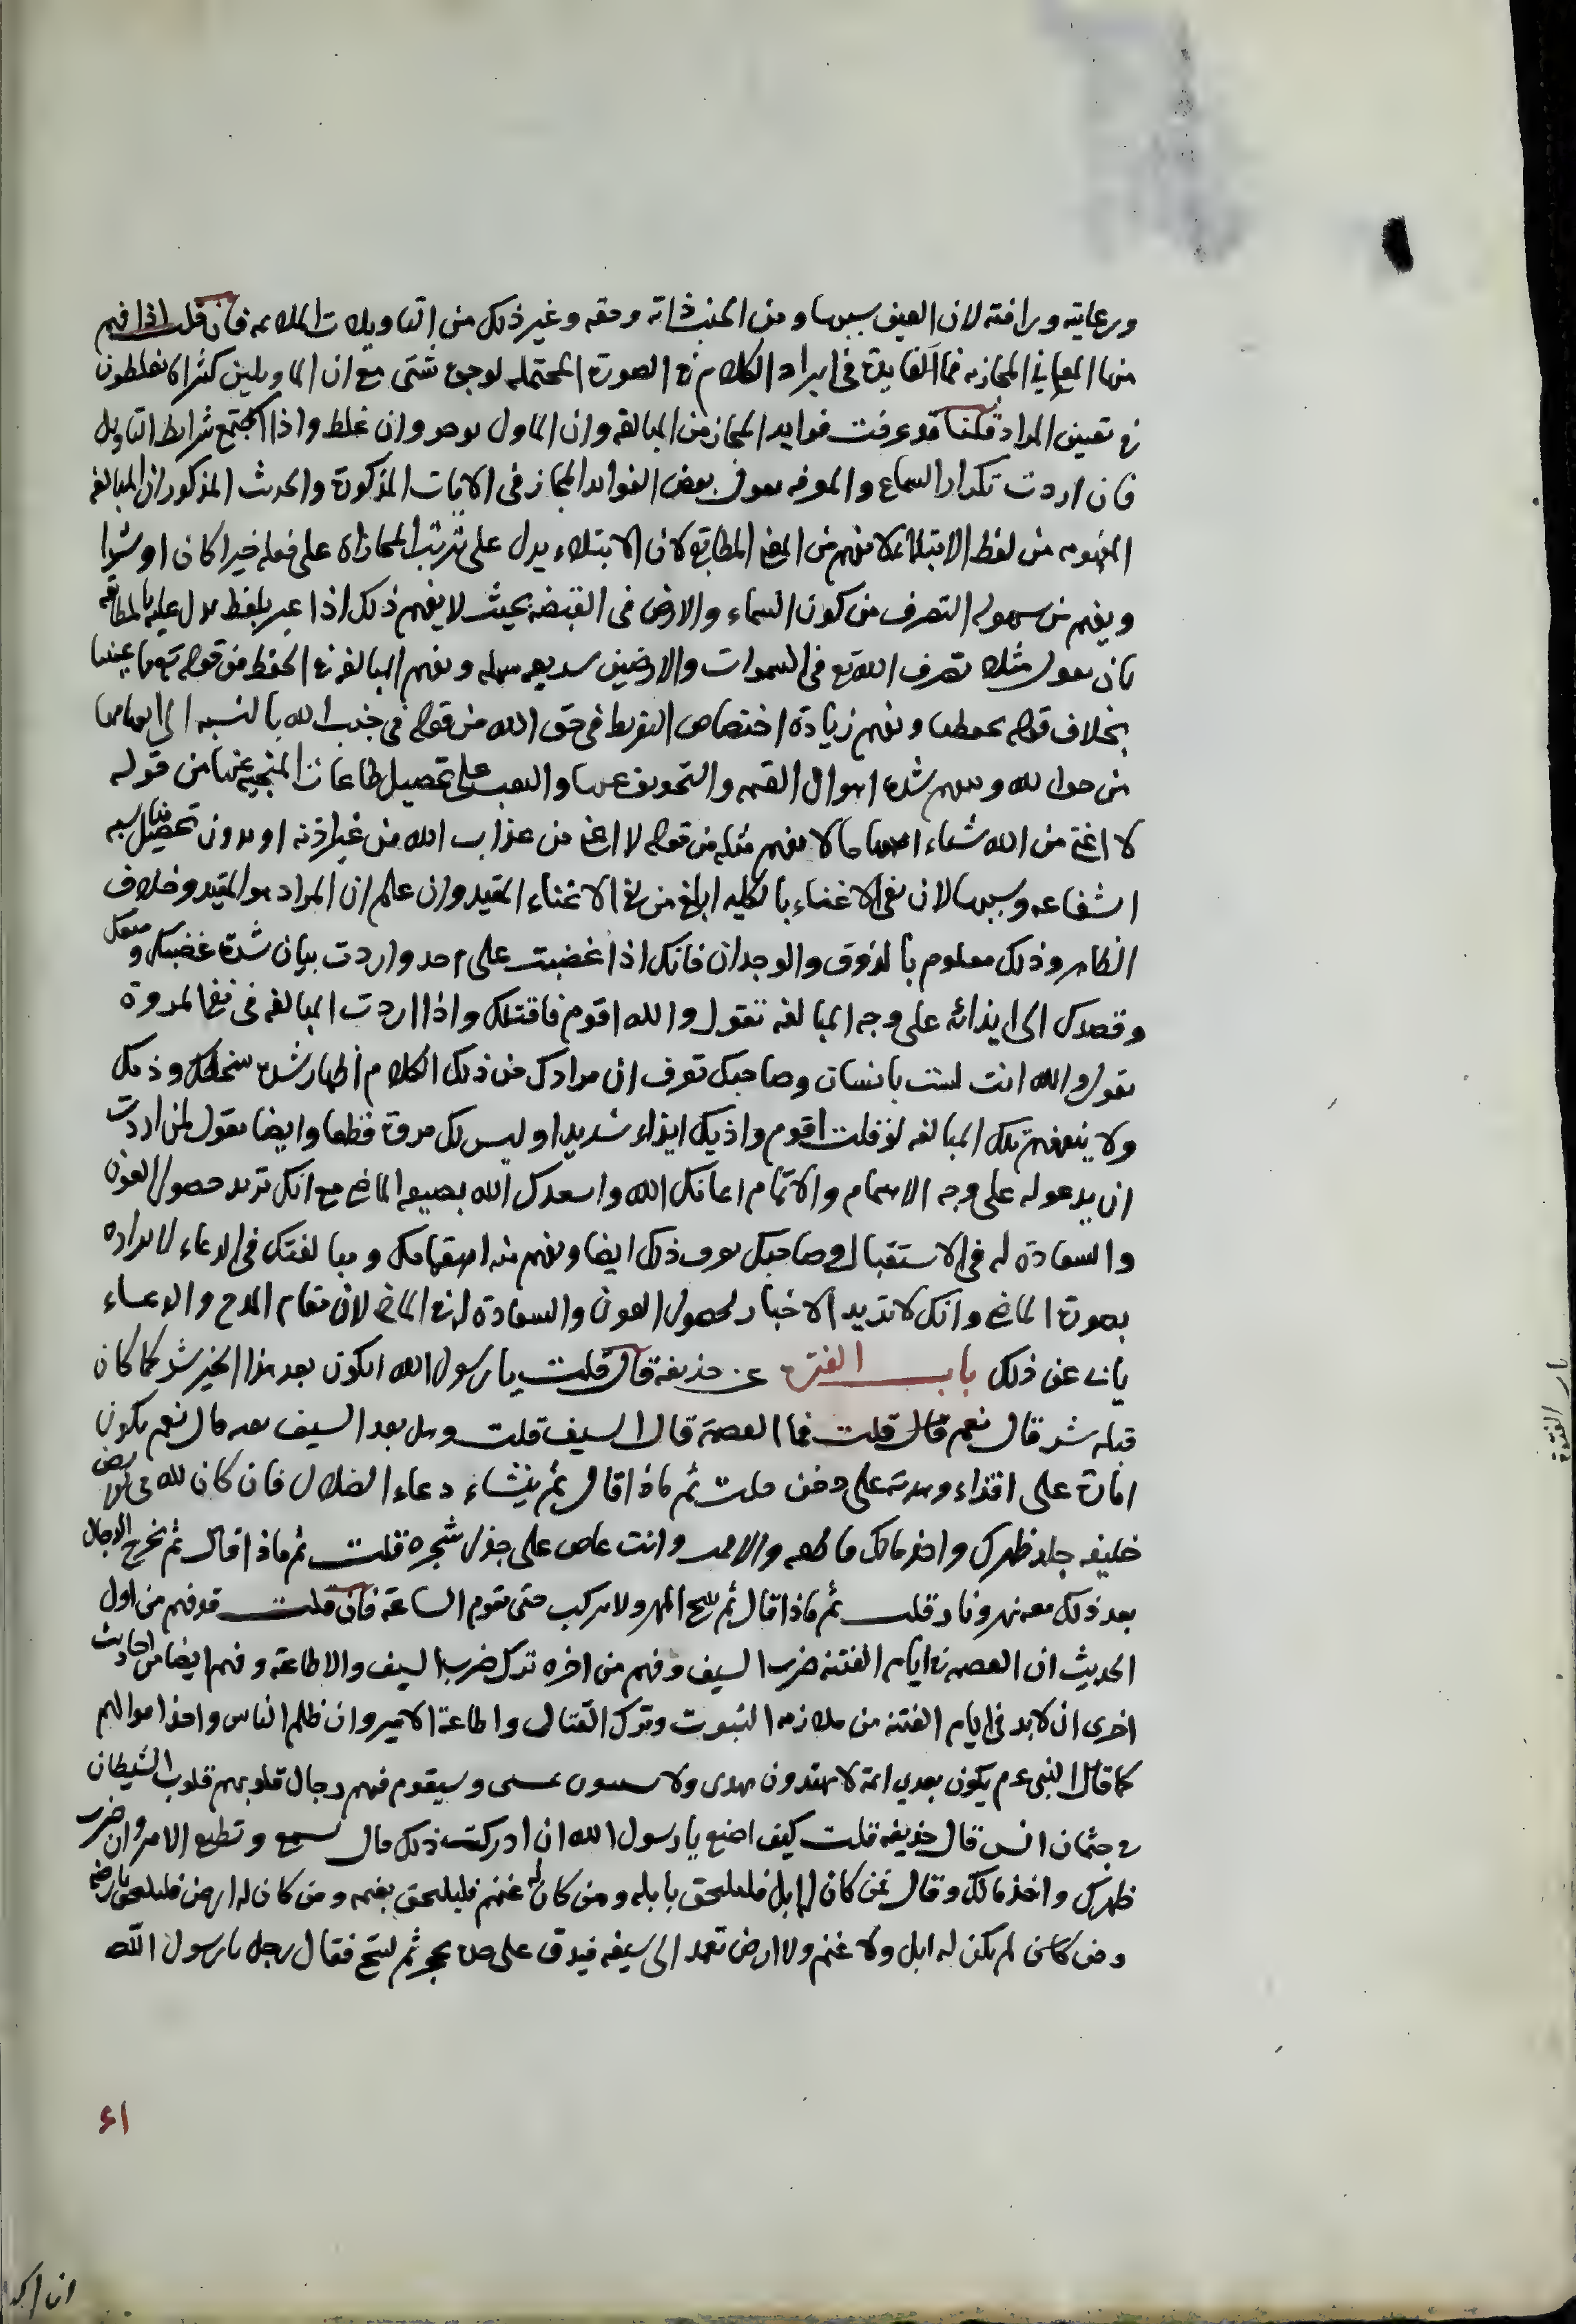 ورعايته ورافته لان العين سببها ومن الجنب شانه وحقه وغير ذلك من التاويلات الملايمه فان قلت اذا فهم
منها المعاني المجازيه فما الفايدة في ايراد الكلام في الصورة المحتمله لوجوه شتى مع ان الماولين كثيرا ما يغلطون
في تعيين المراد قلنا قد عرفت فوايد المجاز من المبالغه وان الماول يوجر وان غلط واذا اجتمع شرايط التاويل
فان اردت تكرار السماع والمعرفه بعض الفوايد المجاز في الايات المذكورة والحديث المذكور ان المبالغه
المفهومه من لفظ الابتلاء لا تفهم من المعنى المطابقي لان الابتلاء يدل على ترتب المجازاة على فعله خيرا كان او شرا
ويفهم من سهوله التصرف من كون السماء والارض في القبضه بحيث لا يفهم ذلك اذا عبر بلفظ يدل عليه بالمطابقه
بان يقول مثلا تصرف الله تع في السموات والارضين سهله ويفهم المبالغه في الحفظ من قوله تع باعيننا
بخلاف قوله بحفظنا ويفهم زيادة اختصاص التفريط في حق الله من قوله في جنب الله بالنسبه الى
من حق الله ويفهم شدة اهوال القيمه والتخويف عنها على تحصيل طاعات المنجيه عنها من قوله
لا اغني من الله شيئا لا يفهم مثله من قوله لا اغني من عذاب الله من غير اذنه او بدون تحصيل
اشفاعه وسببها لان نفي الاغناء بالكليه ابلغ من نفي الاغناء المقيد وان علم ان المراد هو المقيد وخلاف
الظاهر وذلك معلوم بالذوق والوجدان فانك اذا غضبت على احد واردت بيان شدة غضبك و
وقصدك الى ايذائه على وجه المبالغه تقول والله اقوم فاقتلك واذا اردت المبالغه في نفي المروة
تقول والله انت لست بانسان وصاحبك تعرف ان مرادك من ذلك الكلام اظهار شدة سخطك وذمك
ولا ينفهم تلك المبالغه لو قلت اقوم واذيك ايذاء شديدا وليس لك مروة قطعا وايضا تقول لمن اردت
ان يدعو له على وجه الاهتمام والاتمام اعانك الله واسعدك الله بصيغه الماضي مع انك تريد حصول العون
والسعادة له في الاستقبال وصاحبك يعرف ذلك ايضا ويفهم منه اهتمامك ومبالغتك في الدعاء لايراده
بصورة الماضي وانك لا تريد الاخبار لحصول العون والسعادة له في الماضي لان مقام المدح والدعاء
يابى عن ذلك باب الفتن عن حذيفة قال قلت يا رسول الله ايكون بعد هذا الخير شر كما كان
قبله شر قال نعم قال قلت فما العصمة قال السيف قلت وهل بعد السيف بقيه قال نعم يكون
امارة على اقذاء وهدنة على دخن قلت ثم ماذا قال ثم ينشاء دعاء الضلال فان كان لله في الارض
خليفه جلد ظهرك واخذ مالك فاطعه والا فمت وانت عاض على جذل شجره قلت ثم ماذا قال ثم يخرج الدجال
بعد ذلك معه نهر ونار قلت ثم ماذا قال ثم ينتج المهر ولا يركب حتى تقوم الساعة فان قلت قد فهم من اول
الحديث ان العصمه في ايام الفتنه ضرب السيف وفهم من اخره ترك ضرب السيف والاطاعة وفهم ايضا من احاديث
اخرى ان لا بد في ايام الفتنه من ملازمه البيوت وترك القتال واطاعة الامير وان ظلم الناس واخذ اموالهم
كما قال النبي عم يكون بعدي ائمة لا يهتدون بهدى ولا يستنون بسنتي وسيقوم فيهم رجال قلوبهم قلوب الشيطان
في جثمان انس قال حذيفه قلت كيف اصنع يا رسول الله ان ادركت ذلك قال تسمع وتطيع الامر وان ضرب
ظهرك واخذ مالك وقال من كان له ابل فليلحق بابله ومن كان له غنم فليلحق بغنمه ومن كان له ارض فليلحق بارضه
ومن كان لم يكن له ابل ولا غنم ولا ارض تعمد الى سيفه فيدق على حده بحجر ثم لينج فقال رجل يا رسول الله